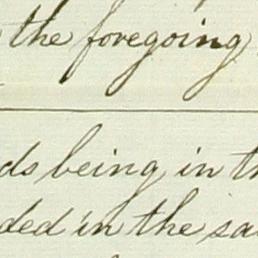 the foregoing
ds being in th
ded in the sa